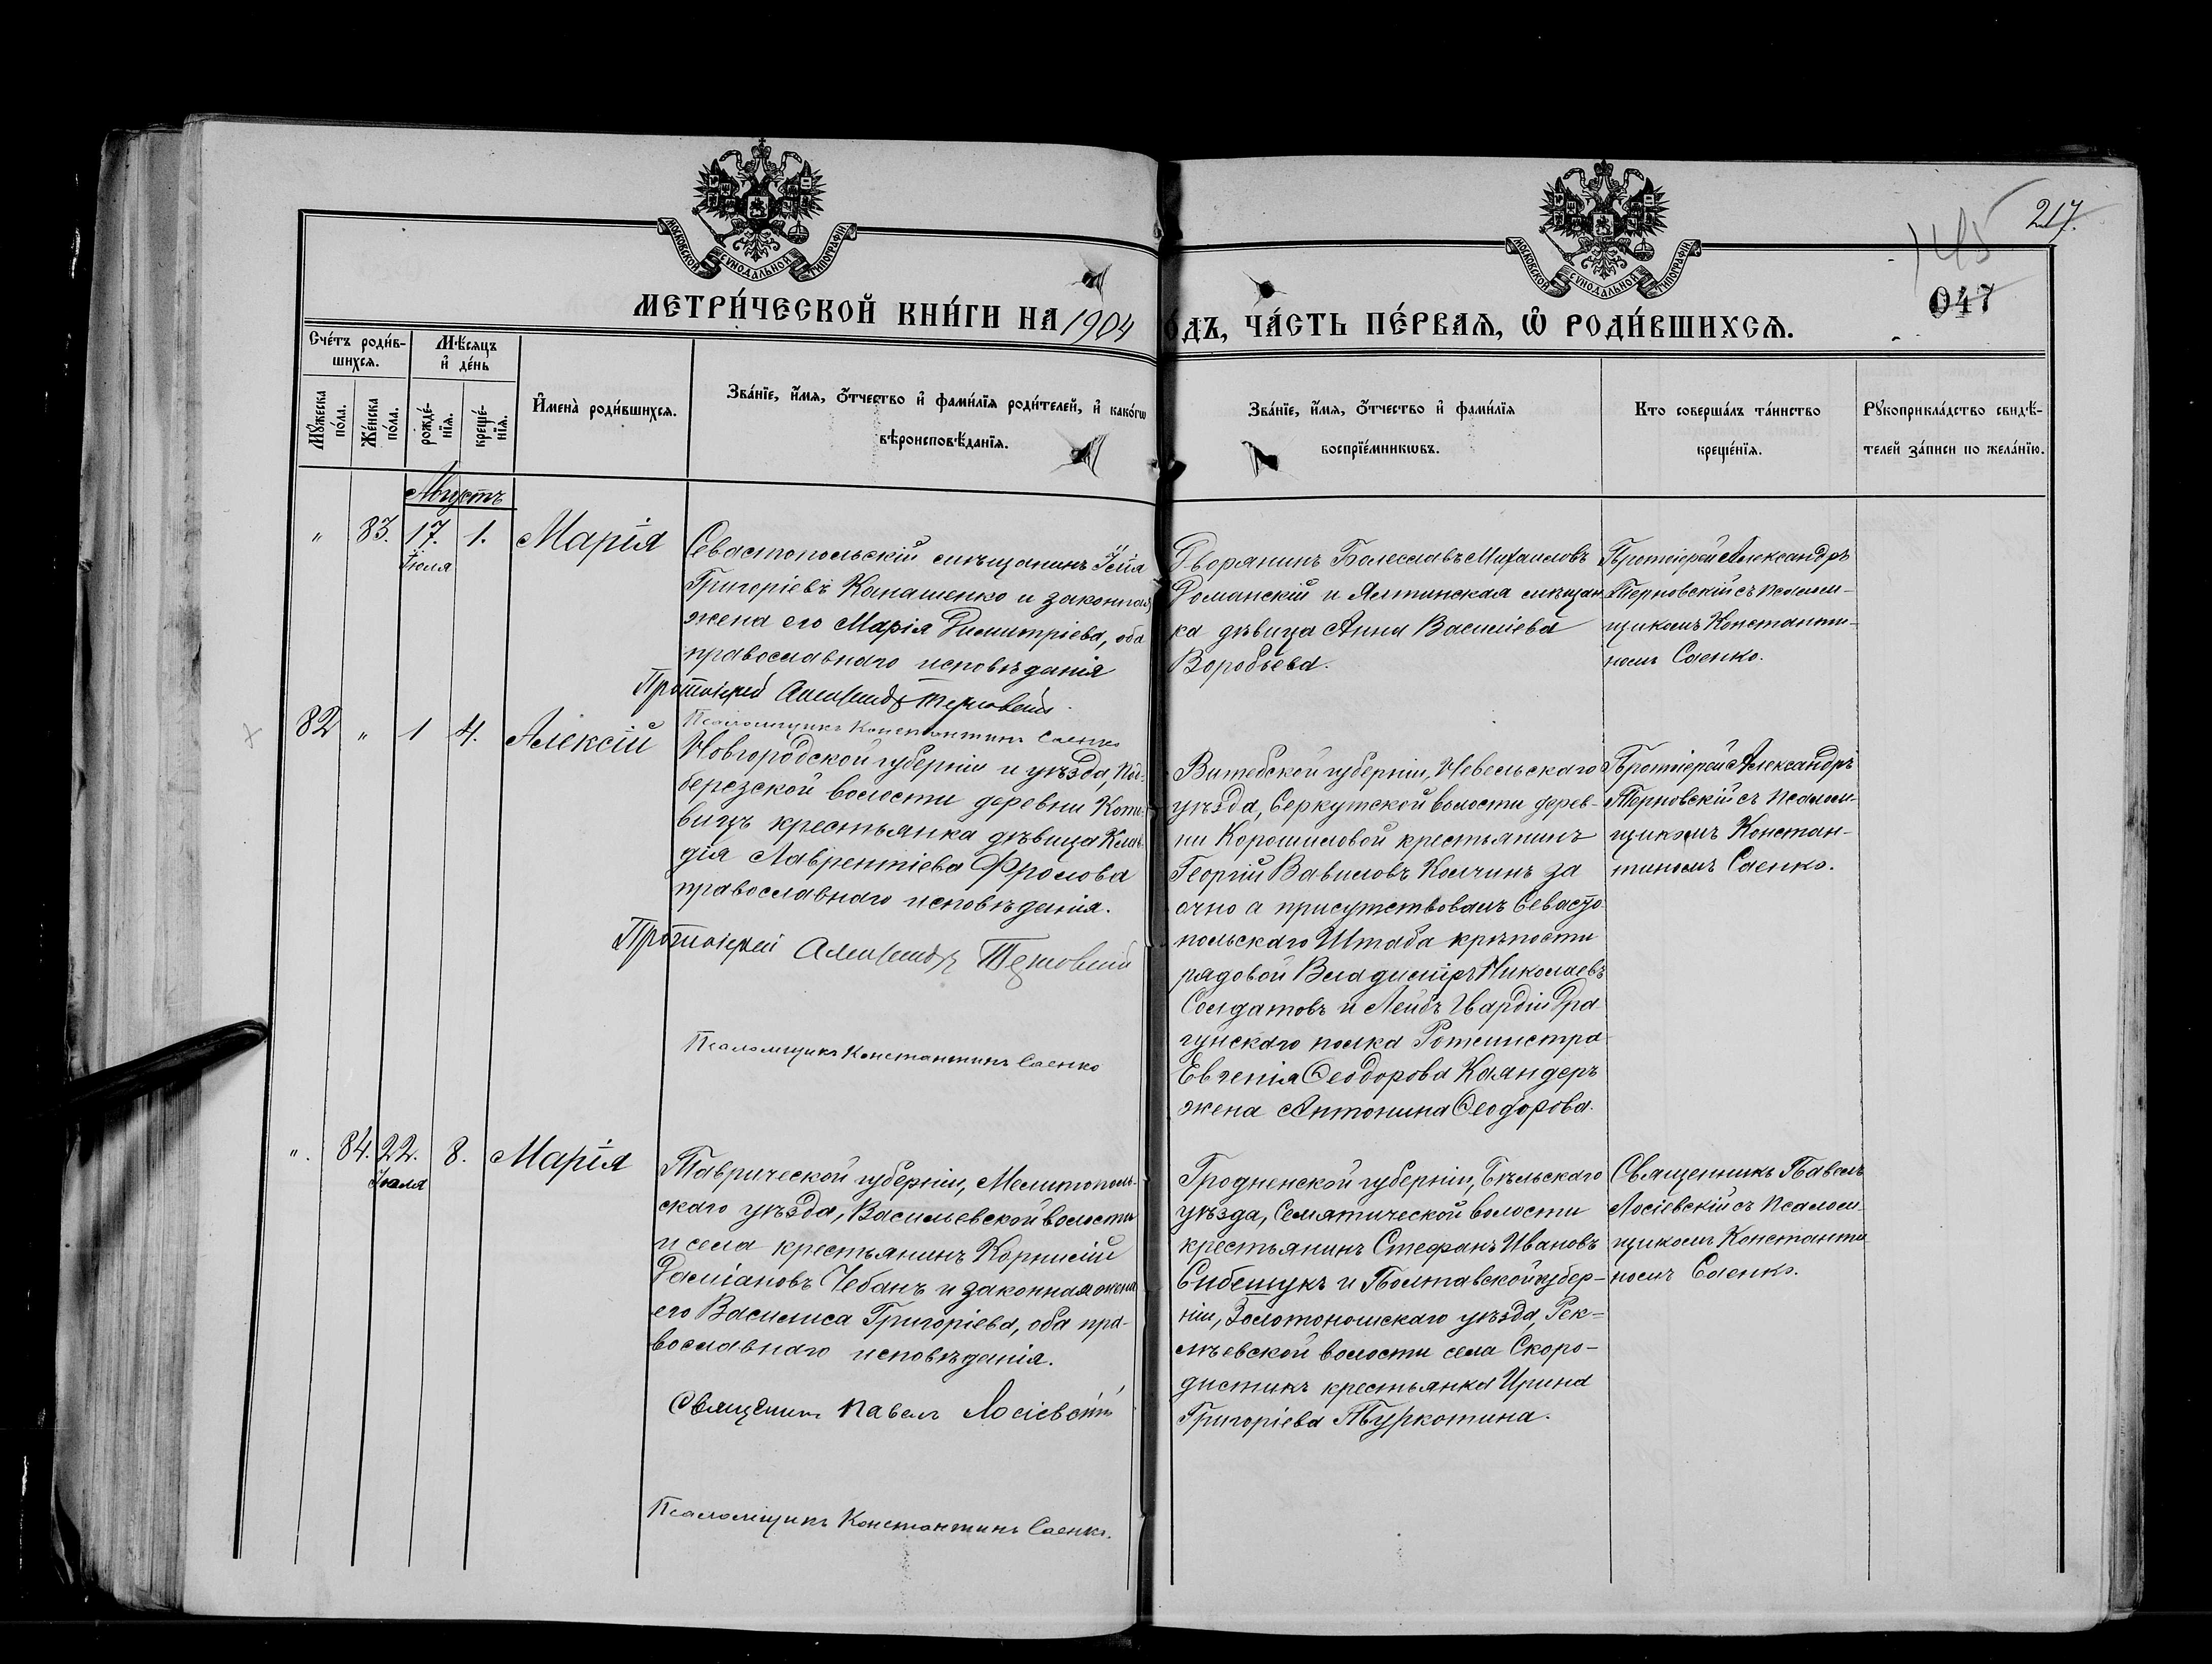 217.
145
047
МОСКОВСКОЙ СУНОДАЛЬНОЙ ТИПОГРАФІИ
МОСКОВСКОЙ СУНОДАЛЬНОЙ ТИПОГРАФІИ
МЕТРИ́ЧЕСКОЙ КНИ́ГИ НА 1904 О́ДЪ, ЧА́СТЬ ПЕ́РВАЯ, Ѡ҆ РОДИ́ВШИХСЯ.
Сче́тъ роди́в-
шихся.
Мѣ́сяцъ
и҆ де́нь
Му́жеска
по́ла.
Же́нска
по́ла.
рожде́-
нїя.
креще́-
нїя.
И҆мена̀ роди́вшихся.
Зва́нїе, и҆́мя, ѻ҆́тчество и҆ фами́лїя роди́телей, и҆ како́гѡ
вѣроисповѣ́данїя.
Зва́нїе, и҆́мя, ѻ҆́тчество и҆ фами́лїя
воспрїе́мникѡвъ.
Кто соверша́лъ та́инство
креще́нїя.
Рукоприкла́дство свидѣ́-
телей за́писи по жела́нїю.
Августъ
" 83. 17. 1. Марія
Іюля
Севастопольскій мѣщанинъ Илія
Григоріевъ Канашенко и законная
жена его Марія Димитріева, оба
православнаго исповѣданія
Протоіерей Александръ Терновскій
Псаломщикъ Константинъ Саенко
Дворянинъ Болеславъ Михаиловъ
Романскій и Ялтинская мѣщан
ка дѣвица Анна Василіева
Воробьева.
Протоіерей Александръ
Терновскій съ псалом-
щикомъ Константи-
номъ Саенко.
82 " 1 4. Алексій
Новгородской губерніи и уѣзда, Под-
березской волости деревни Коты-
вицъ крестьянка дѣвица Клав-
дія Лаврентіева Фролова
православнаго исповѣданія.
Протоіерей Александръ Терновскій
Псаломщикъ Константинъ Саенко
Витебской губерніи, Невельскаго
уѣзда, Серкутской волости дерев-
ни Корошиловой крестьянинъ
Георгій Вавиловъ Колчинъ за
очно а присутствовалъ Севасто
польскаго Штаба крѣпости
рядовой Владиміръ Николаевъ
Солдатовъ и Лейбъ Гвардіи Дра
гунскаго полка Ротмистра
Евгенія Ѳеодорова Каландеръ
жена Антонина Ѳеодорова.
Протоіерей Александръ
Терновскій съ псалом-
щикомъ Констан-
тиномъ Саенко.
". 84. 22. 8. Марія
Іюля
Таврической губерніи, Мелитополь-
скаго уѣзда, Васильевской волости
и села крестьянинъ Корнилій
Даміановъ Чебанъ и законная жена
его Василиса Григоріева, оба пра-
вославнаго исповѣданія.
Священникъ Павелъ Лосіевскій
Псаломщикъ Константинъ Саенко.
Гродненской губерніи, Бѣльскаго
уѣзда, Семятической волости
крестьянинъ Стефанъ Ивановъ
Сибешукъ и Полтавской губер-
ніи, Золотоношскаго уѣзда, Рек-
лѣевской волости села Скоро-
дистикъ крестьянка Ирина
Григоріева Туркотина.
Священникъ Павелъ
Лосіевскій съ псалом-
щикомъ Константи
номъ Саенко.